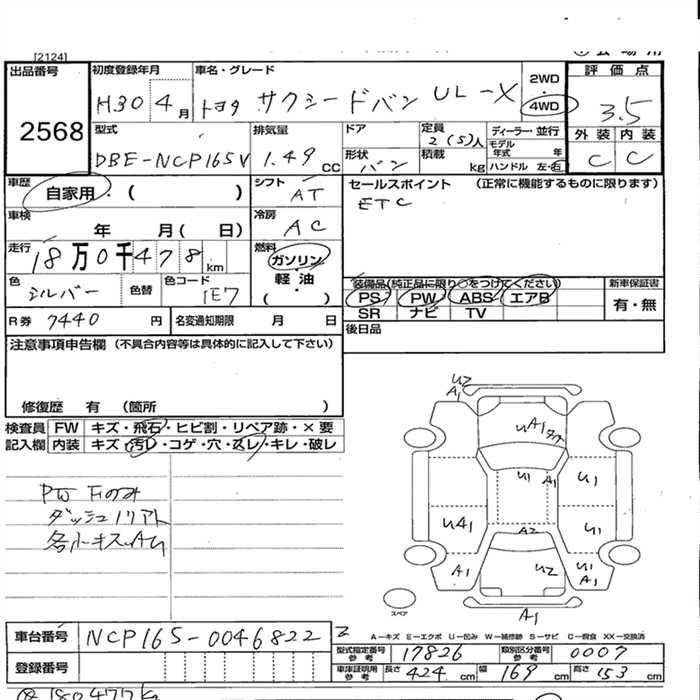 [2124]
出品番号 2568
初度登録年月 H30 4月
車名・グレード トヨタ サクシードバン UL-X
2WD・4WD
評価点 3.5
外装 内装
C C
型式 DBE-NCP165V
排気量 1.49 CC
ドア
形状 バン
定員 2(5)人
積載 kg
ディーラー・並行
モデル年式 年
ハンドル 左・右
車歴 自家用・( )
シフト AT
セールスポイント (正常に機能するものに限ります)
ETC
車検 年 月( 日)
冷房 AC
走行 18万0千478km
燃料 ガソリン・軽油 ( )
色 シルバー 色替 色コード 1E7
装備品(純正品に限り○をつけてください)
PS PW ABS エアB
SR ナビ TV
新車保証書 有・無
R券 7440円 名変通知期限 月 日
後日品
注意事項申告欄 (不具合内容等は具体的に記入して下さい)
修復歴 有 (箇所 )
検査員 FW キズ・飛石・ヒビ割・リペア跡・×要
記入欄 内装 キズ・汚レ・コゲ・穴・スレ・キレ・破レ
PW Fのみ
U2
A1
UA1
U1 A1
U1
UA1
A2
U1
A1
U2
U1
A1
A1
スペア
A-キズ E-エクボ U-凹み W-補修跡 S-サビ C-腐食 XX-交換済
車台番号 NCP165-0046822
型式指定番号 参考 17826
類別区分番号 参考 0007
登録番号
車庫証明用 参考 長さ 424cm 幅 169cm 高さ 153cm